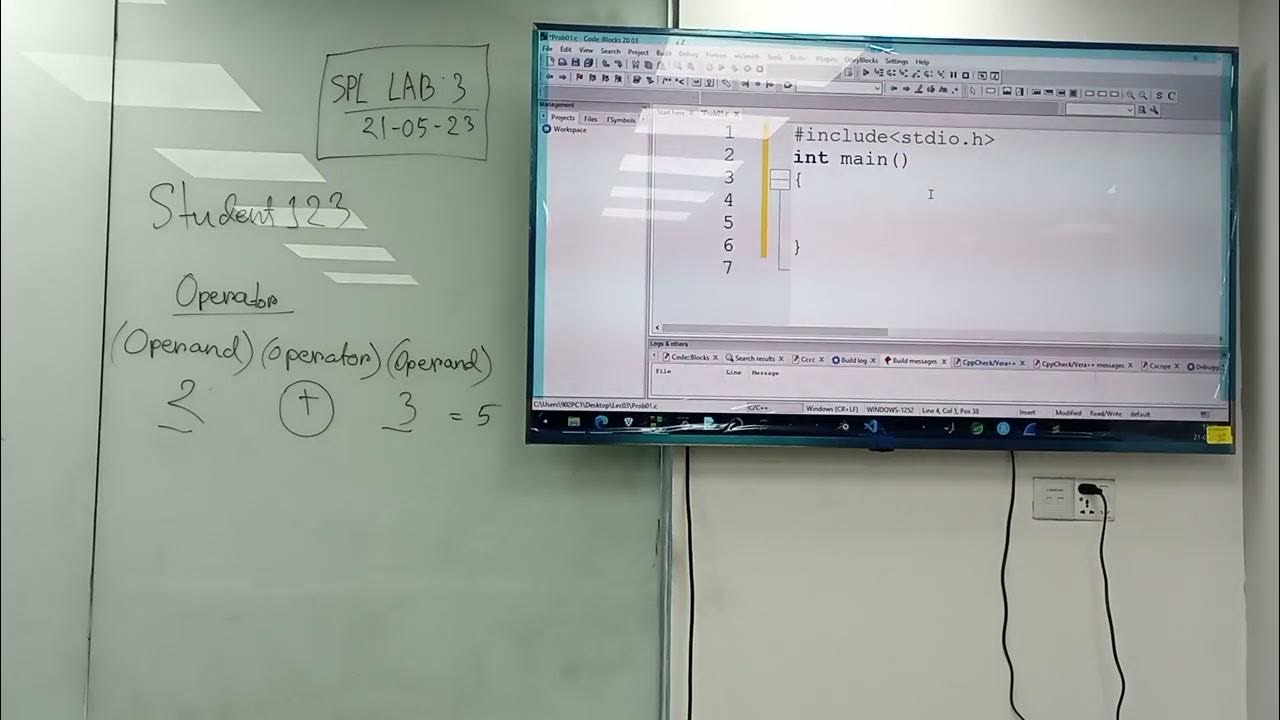 SPL LAB : 3
21-05-23
Student 123
Operator
(Operand) (operator) (Operand)
2 + 3 = 5
*Prob01.c - Code::Blocks 20.03
File Edit View Search Project Build Debug Fortran wxSmith Tools Tools+ Plugins DoxyBlocks Settings Help
S C
Management
Projects Files FSymbols
Workspace
Start here *Prob01.c
1 #include<stdio.h>
2 int main()
3 {
4
5
6 }
7
Logs & others
Code::Blocks Search results Cccc Build log Build messages CppCheck/Vera++ CppCheck/Vera++ messages Cscope Debugg
File Line Message
C:\Users\902PC1\Desktop\Lec03\Prob01.c C/C++ Windows (CR+LF) WINDOWS-1252 Line 4, Col 5, Pos 38 Insert Modified Read/Write default